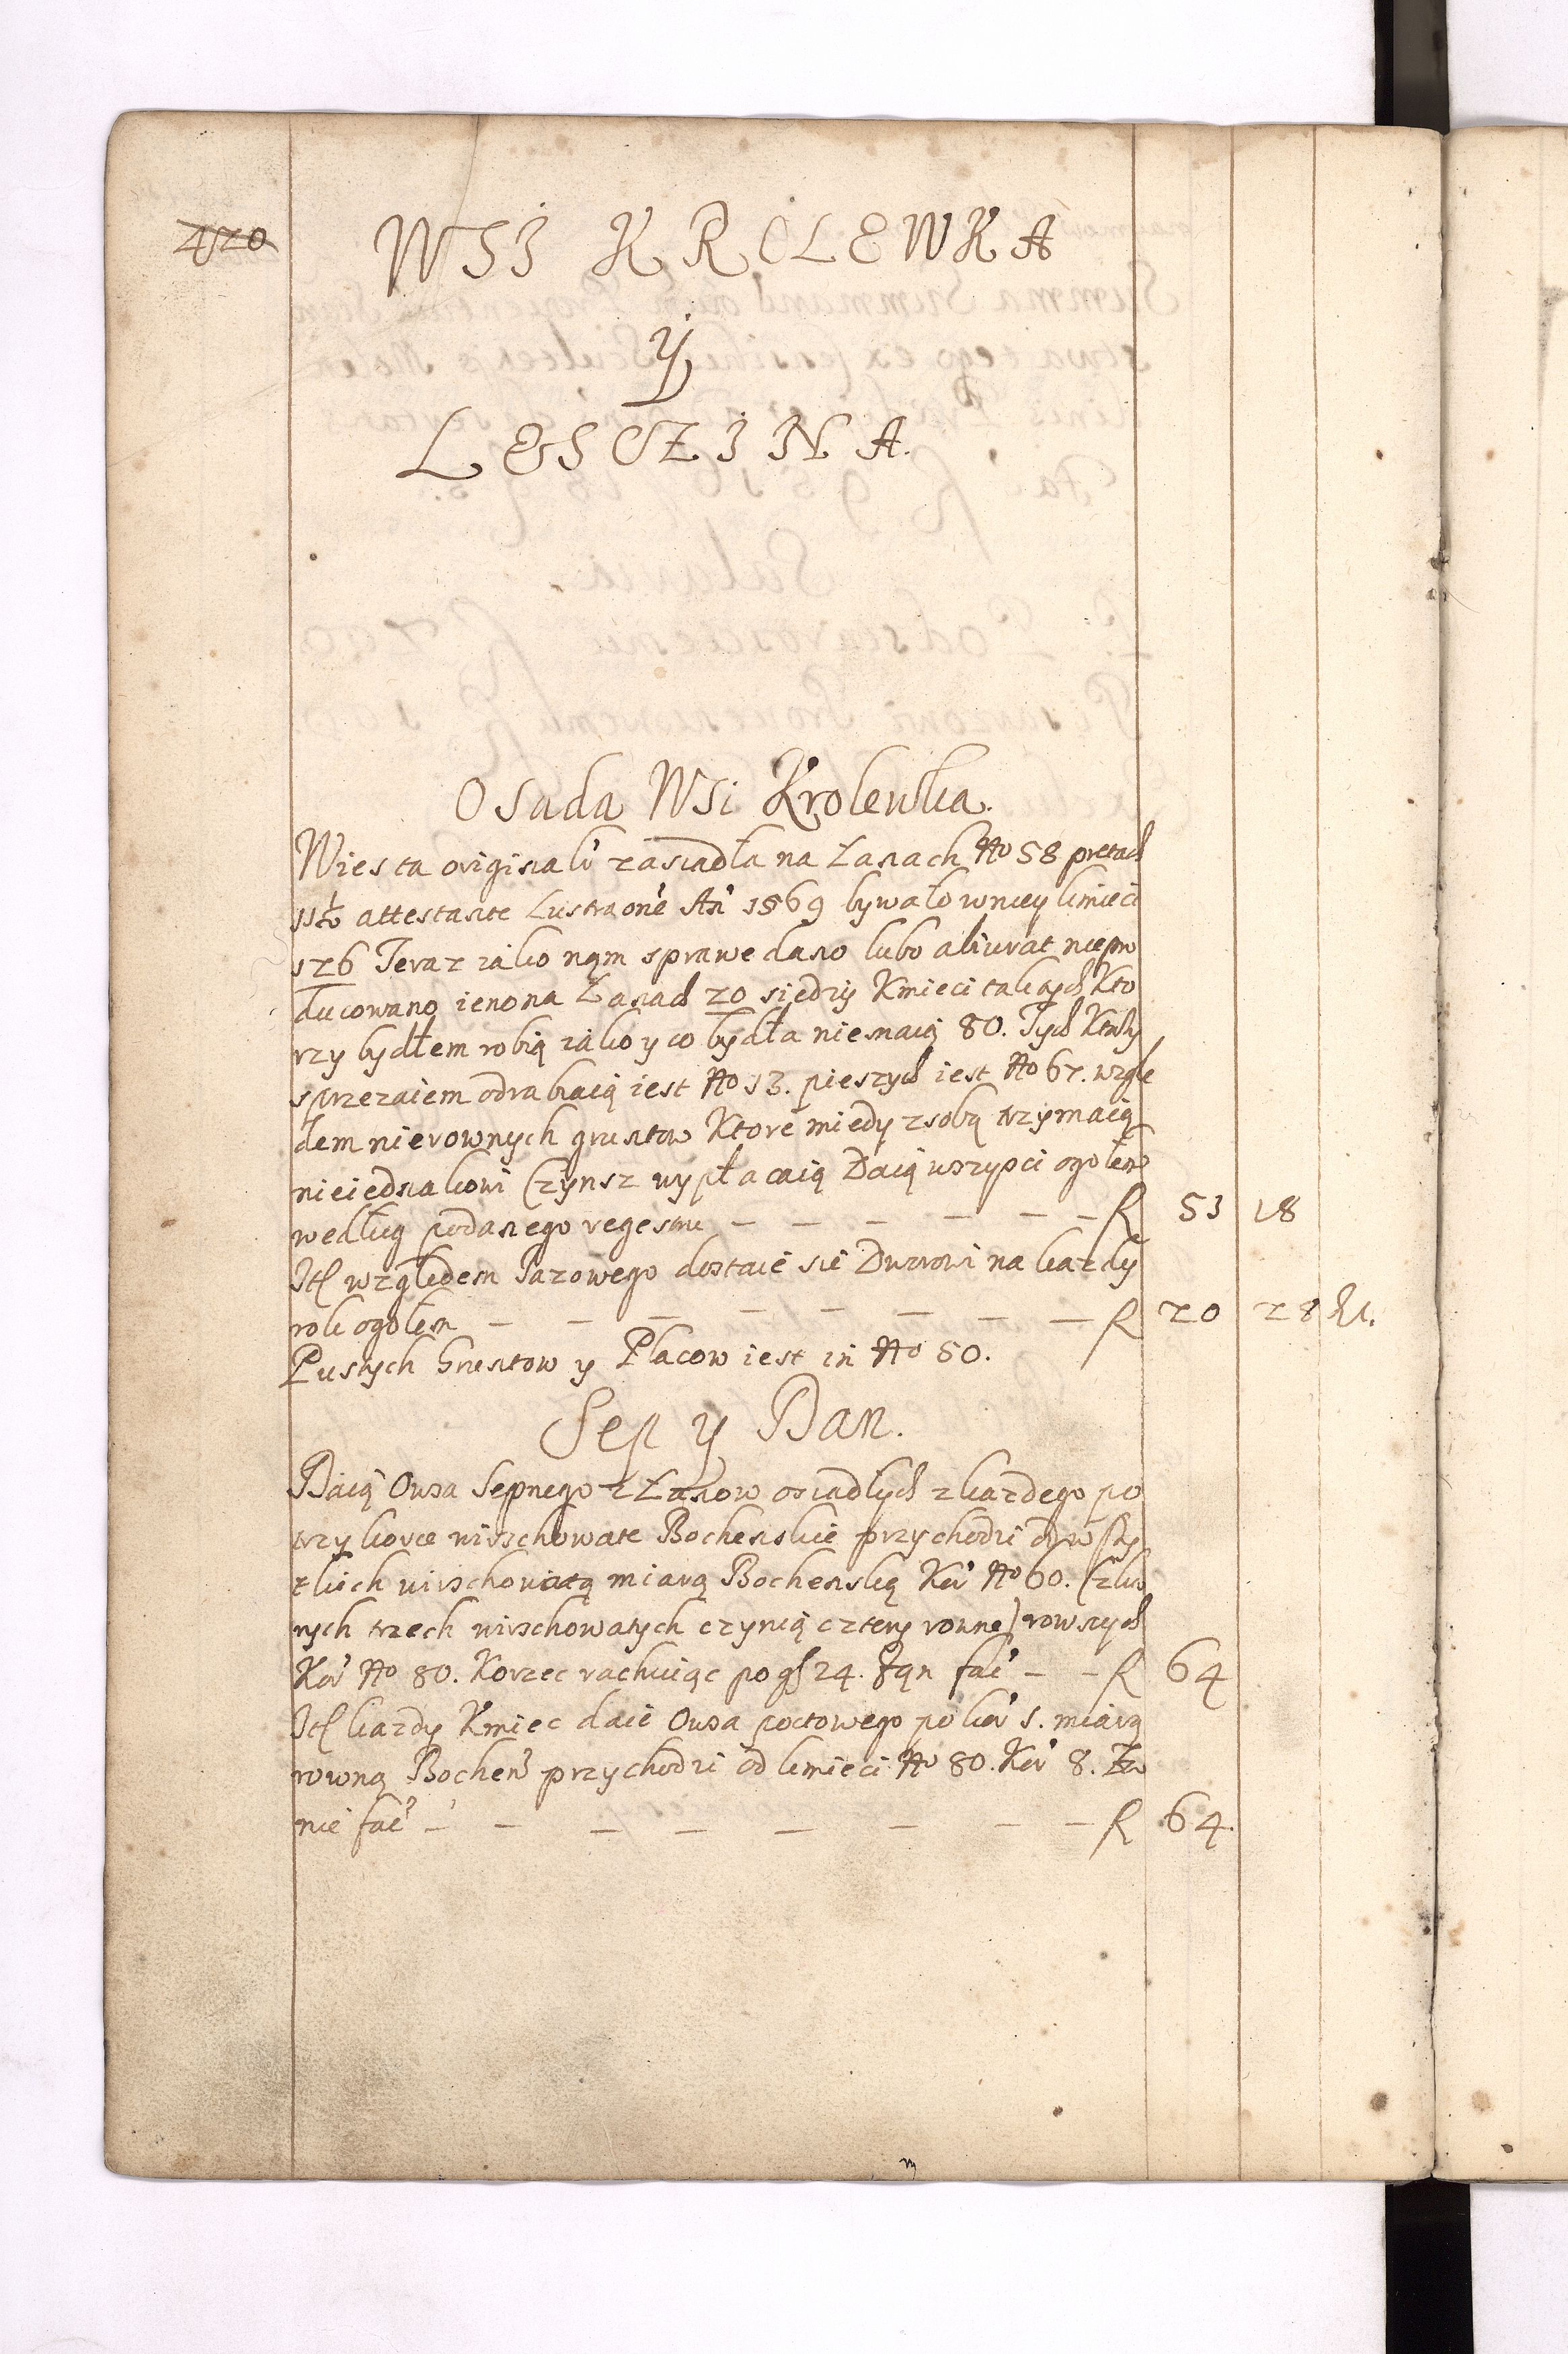 420
WSI KROLEWKA
ÿ
LESCZINA.
Osada Wsi Krolewka.
Wies ta originali zasiadła na Łanach No 58 pretach
11½ attestante Lustraone An 1569 bywało wniey kmieci
126 Teraz iako nąm sprawe dano lubo akurat niepro
dukowano ieno na Łanach 20 siedzy Kmieci takich Kto
rzy bydłem robią iako y co bydła niemaią 80. Tych Ktorzy
sprzezaiem odrabiaią iest No 13. pieszych iest No 67. wzglę
dem nierownych gruntow Ktore miedy zsobą trzymaią
nieiednakowi Czynsz wypłacaią Daią wszysci ogołem
według podanego regestru — — — — — — R 51 18
Itl względem Jazowego dostaie sie Dworowi na kazdy
rok ogołem — — — — — — — — R 20 28 R1.
Pustych Gruntow y Placow iest in No 50.
Sep y Dan.
Daią Owsa Sepnego z Łanow osiadłych z kazdego po
trzy korce wirschowate Bochenskie przychodzi od wszy
tkich wirschowatą miarą Bochenską Kor No 60. (z kto
rych trzech wirschowatych czynią cztery rowne) rownych
Kor No 80. Korzec rachuiąc po gs 24. fac — — R 64
Itl kazdy Kmiec daie Owsa poctowego po kor 1. miarą
rowną Bochen przychodzi od kmieci No 80. Kor 8.
nie fac — — — — — — — — R 64.